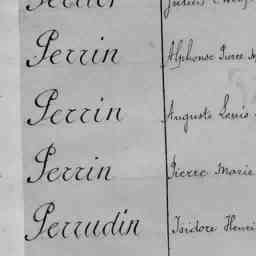 Perrin Alphonse Pierre
Perrin Auguste Louis
Perrin Pierre Marie
Perrudin Isidore Henri